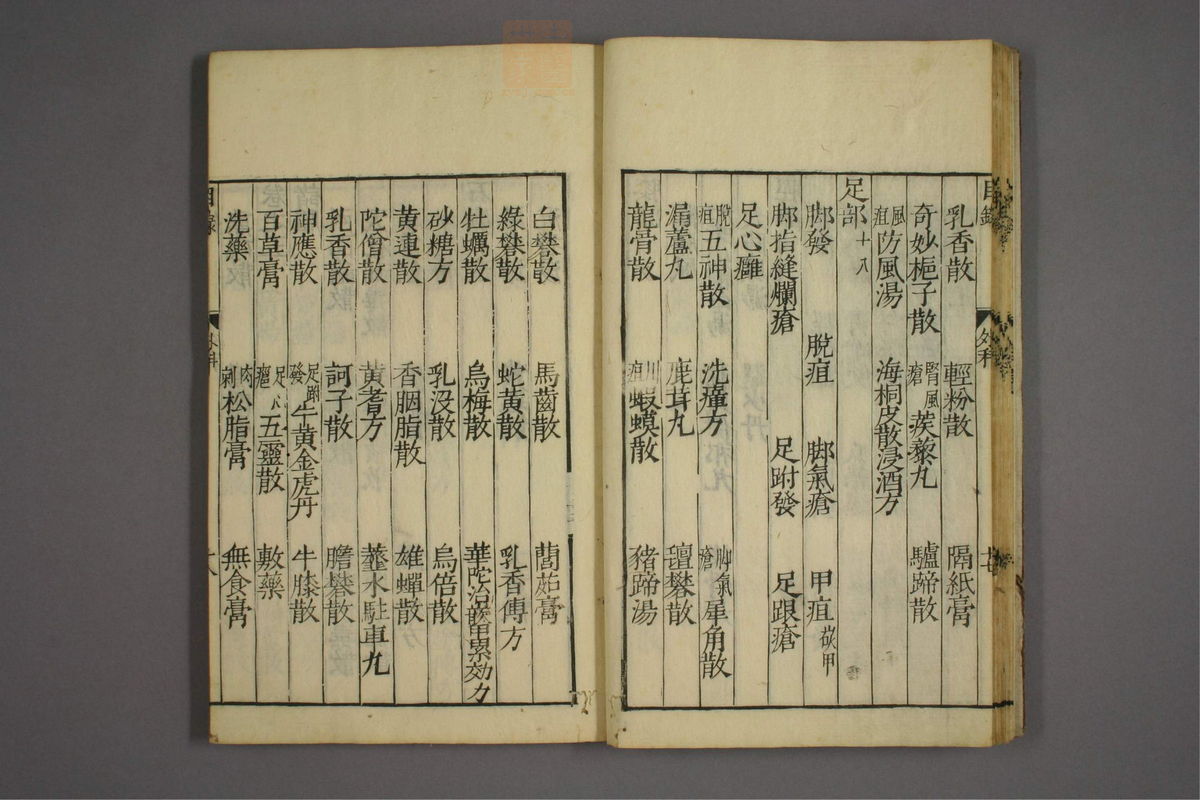 乳香散 輕粉散 隔紙膏
奇妙梔子散 腎風瘡蒺藜丸 驢蹄散
風疽防風湯 海桐皮散浸酒方
足部十八
脚發 脫疽 脚氣瘡 甲疽嵌甲
脚指縫爛瘡 足跗發 足跟瘡
足心癰
脫疽五神散 洗癉方 脚氣瘡犀角散
漏蘆丸 鹿茸丸 礬散
龍骨散 疽蝦蟆散 豬蹄湯
白礬散 馬齒散 䕡茹膏
綠礬散 蛇黃散 乳香傅方
牡蠣散 烏梅散 華陀治累効方
砂糖方 乳没散 烏倍散
黃連散 香胭脂散 雄蟬散
陀僧散 黃耆方 虀水駐車丸
乳香散 訶子散 膽礬散
神應散 足跗發牛黃金虎丹 牛膝散
百草膏 足心癰五靈散 敷藥
洗藥 肉刺松脂膏 無食膏
目錄 外科